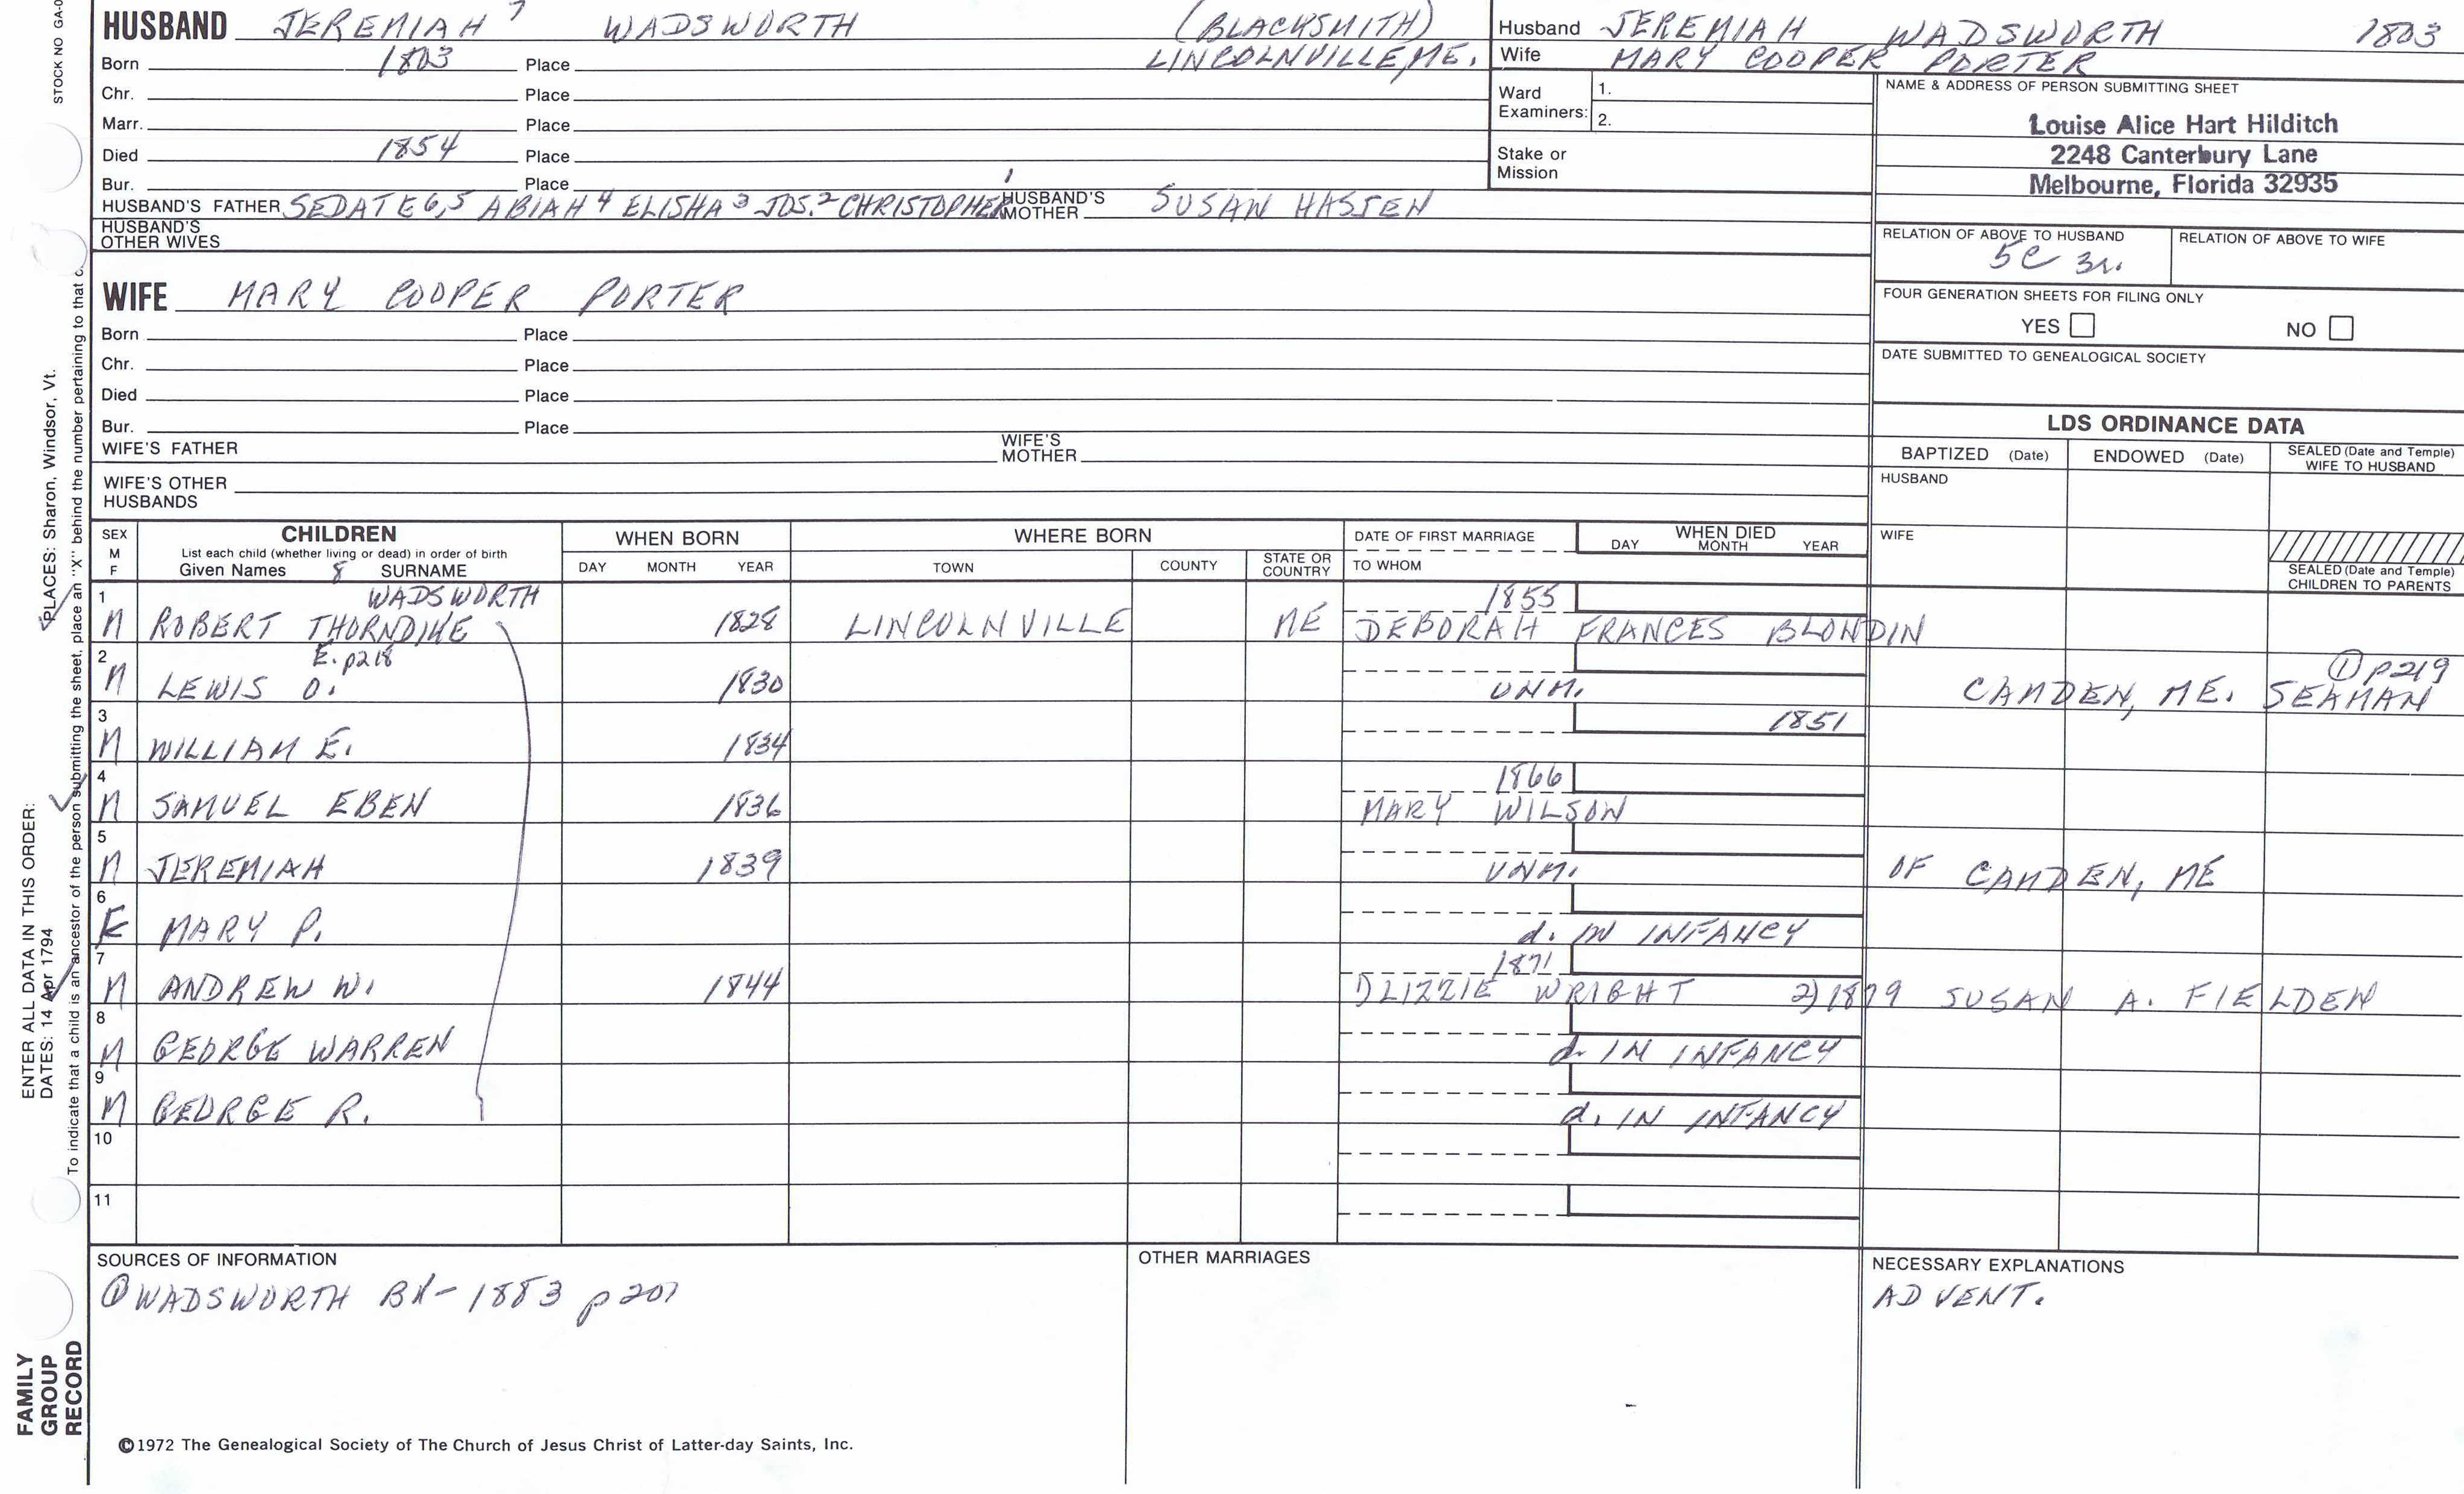 STOCK NO GA-0
HUSBAND JEREMIAH 7 WADSWORTH (BLACKSMITH)
Born 1803 Place LINCOLNVILLE, ME.
Chr. Place
Marr. Place
Died 1854 Place
Bur. Place
HUSBAND'S FATHER SEDATE 6,5 ABIAH 4 ELISHA 3 JOS. 2 CHRISTOPHER 1 HUSBAND'S MOTHER SUSAN HASTEN
HUSBAND'S OTHER WIVES
Husband JEREMIAH WADSWORTH 1803
Wife MARY COOPER PORTER
Ward Examiners: 1.
2.
Stake or Mission
NAME & ADDRESS OF PERSON SUBMITTING SHEET
Louise Alice Hart Hilditch
2248 Canterbury Lane
Melbourne, Florida 32935
RELATION OF ABOVE TO HUSBAND RELATION OF ABOVE TO WIFE
5C 3r.
FOUR GENERATION SHEETS FOR FILING ONLY
YES NO
DATE SUBMITTED TO GENEALOGICAL SOCIETY
WIFE MARY COOPER PORTER
Born Place
Chr. Place
Died Place
Bur. Place
WIFE'S FATHER WIFE'S MOTHER
WIFE'S OTHER HUSBANDS
LDS ORDINANCE DATA
BAPTIZED (Date) ENDOWED (Date) SEALED (Date and Temple) WIFE TO HUSBAND
HUSBAND
WIFE
SEALED (Date and Temple) CHILDREN TO PARENTS
SEX M F CHILDREN WHEN BORN WHERE BORN DATE OF FIRST MARRIAGE WHEN DIED
List each child (whether living or dead) in order of birth
Given Names 8 SURNAME DAY MONTH YEAR TOWN COUNTY STATE OR COUNTRY TO WHOM DAY MONTH YEAR
1 WADSWORTH 1855
M ROBERT THORNDIKE 1828 LINCOLNVILLE ME DEBORAH FRANCES BLONDIN
2 E. p218 ① p219
M LEWIS O. 1830 UNM. CAMDEN, ME. SEAMAN
3 1851
M WILLIAM E. 1834
4 1866
M SAMUEL EBEN 1836 MARY WILSON
5
M JEREMIAH 1839 UNM. OF CAMDEN, ME
6
F MARY P. d. IN INFANCY
7 1871
M ANDREW W. 1844 1) LIZZIE WRIGHT 2) 1879 SUSAN A. FIELDEN
8
M GEORGE WARREN d. IN INFANCY
9
M GEORGE R. d. IN INFANCY
10
11
SOURCES OF INFORMATION
① WADSWORTH BK- 1883 p 207
OTHER MARRIAGES
NECESSARY EXPLANATIONS
ADVENT.
©1972 The Genealogical Society of The Church of Jesus Christ of Latter-day Saints, Inc.
FAMILY GROUP RECORD
ENTER ALL DATA IN THIS ORDER:
DATES: 14 Apr 1794
PLACES: Sharon, Windsor, Vt.
To indicate that a child is an ancestor of the person submitting the sheet, place an "X" behind the number pertaining to that